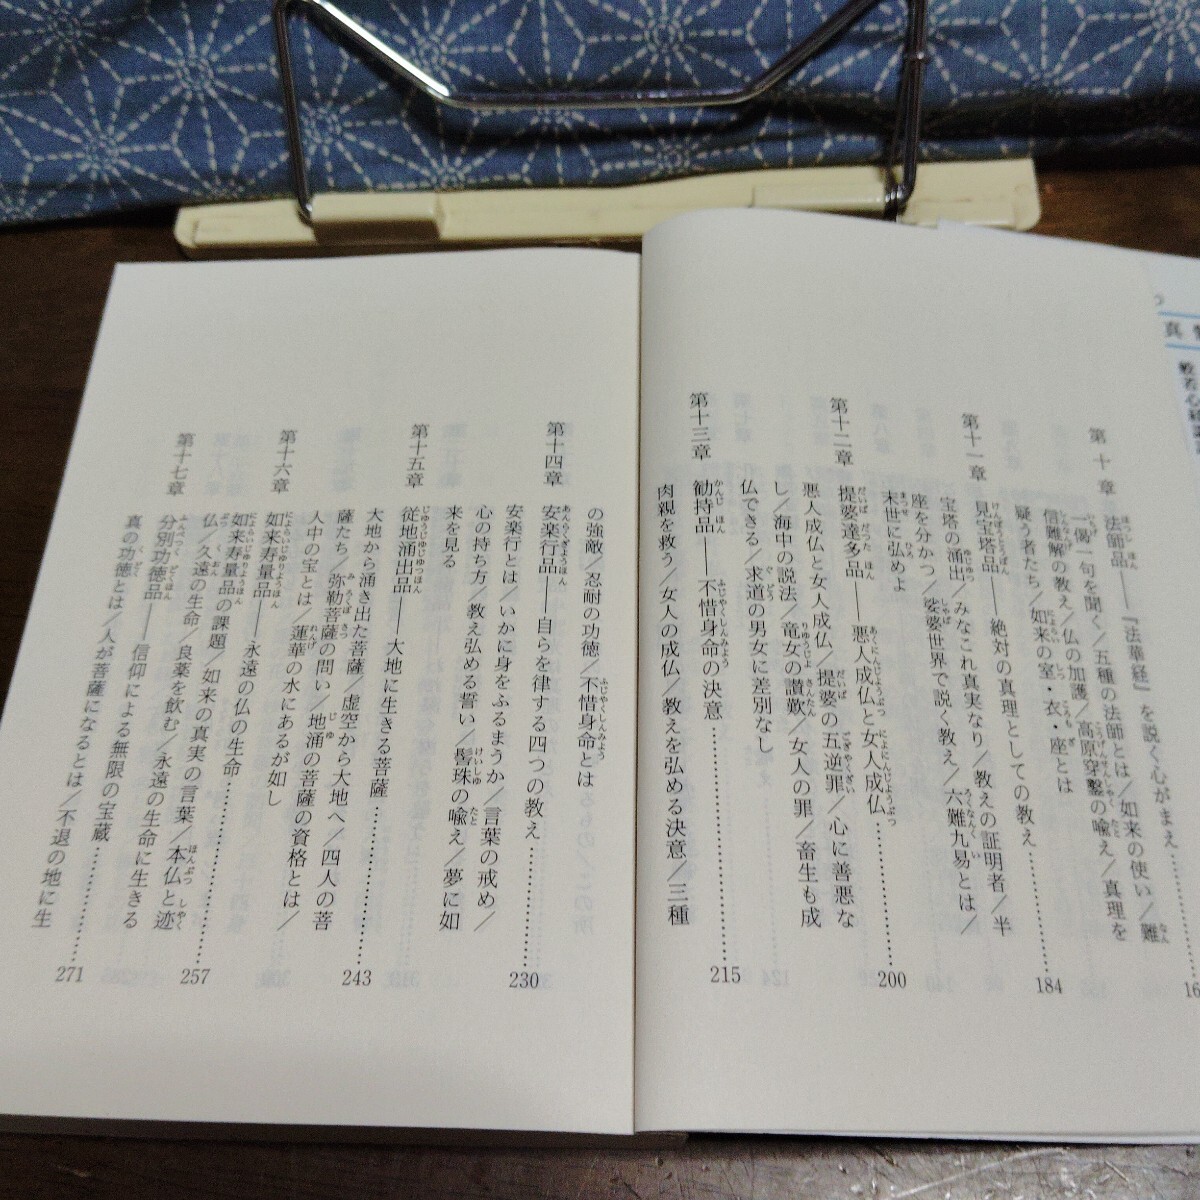 第十章 法師品――『法華経』を説く心がまえ
一偈一句を聞く／五種の法師とは／如来の使い／難
信難解の教え／仏の加護／高原穿鑿の喩え／真理を
疑う者たち／如来の室・衣・座とは
第十一章 見宝塔品――絶対の真理としての教え 184
宝塔の涌出／みなこれ真実なり／教えの証明者／半
座を分かつ／娑婆世界で説く教え／六難九易とは／
末世に弘めよ
第十二章 提婆達多品――悪人成仏と女人成仏 200
悪人成仏と女人成仏／提婆の五逆罪／心に善悪な
し／海中の説法／竜女の讃歎／女人の罪／畜生も成
仏できる／求道の男女に差別なし
第十三章 勧持品――不惜身命の決意 215
肉親を救う／女人の成仏／教えを弘める決意／三種
の強敵／忍耐の功徳／不惜身命とは
第十四章 安楽行品――自らを律する四つの教え 230
安楽行とは／いかに身をふるまうか／言葉の戒め／
心の持ち方／教え弘める誓い／髻珠の喩え／夢に如
来を見る
第十五章 従地涌出品――大地に生きる菩薩 243
大地から涌き出た菩薩／虚空から大地へ／四人の菩
薩たち／弥勒菩薩の問い／地涌の菩薩の資格とは／
人中の宝とは／蓮華の水にあるが如し
第十六章 如来寿量品――永遠の仏の生命 257
如来寿量品の課題／如来の真実の言葉／本仏と迹
仏／久遠の生命／良薬を飲む／永遠の生命に生きる
第十七章 分別功徳品――信仰による無限の宝蔵 271
真の功徳とは／人が菩薩になるとは／不退の地に生